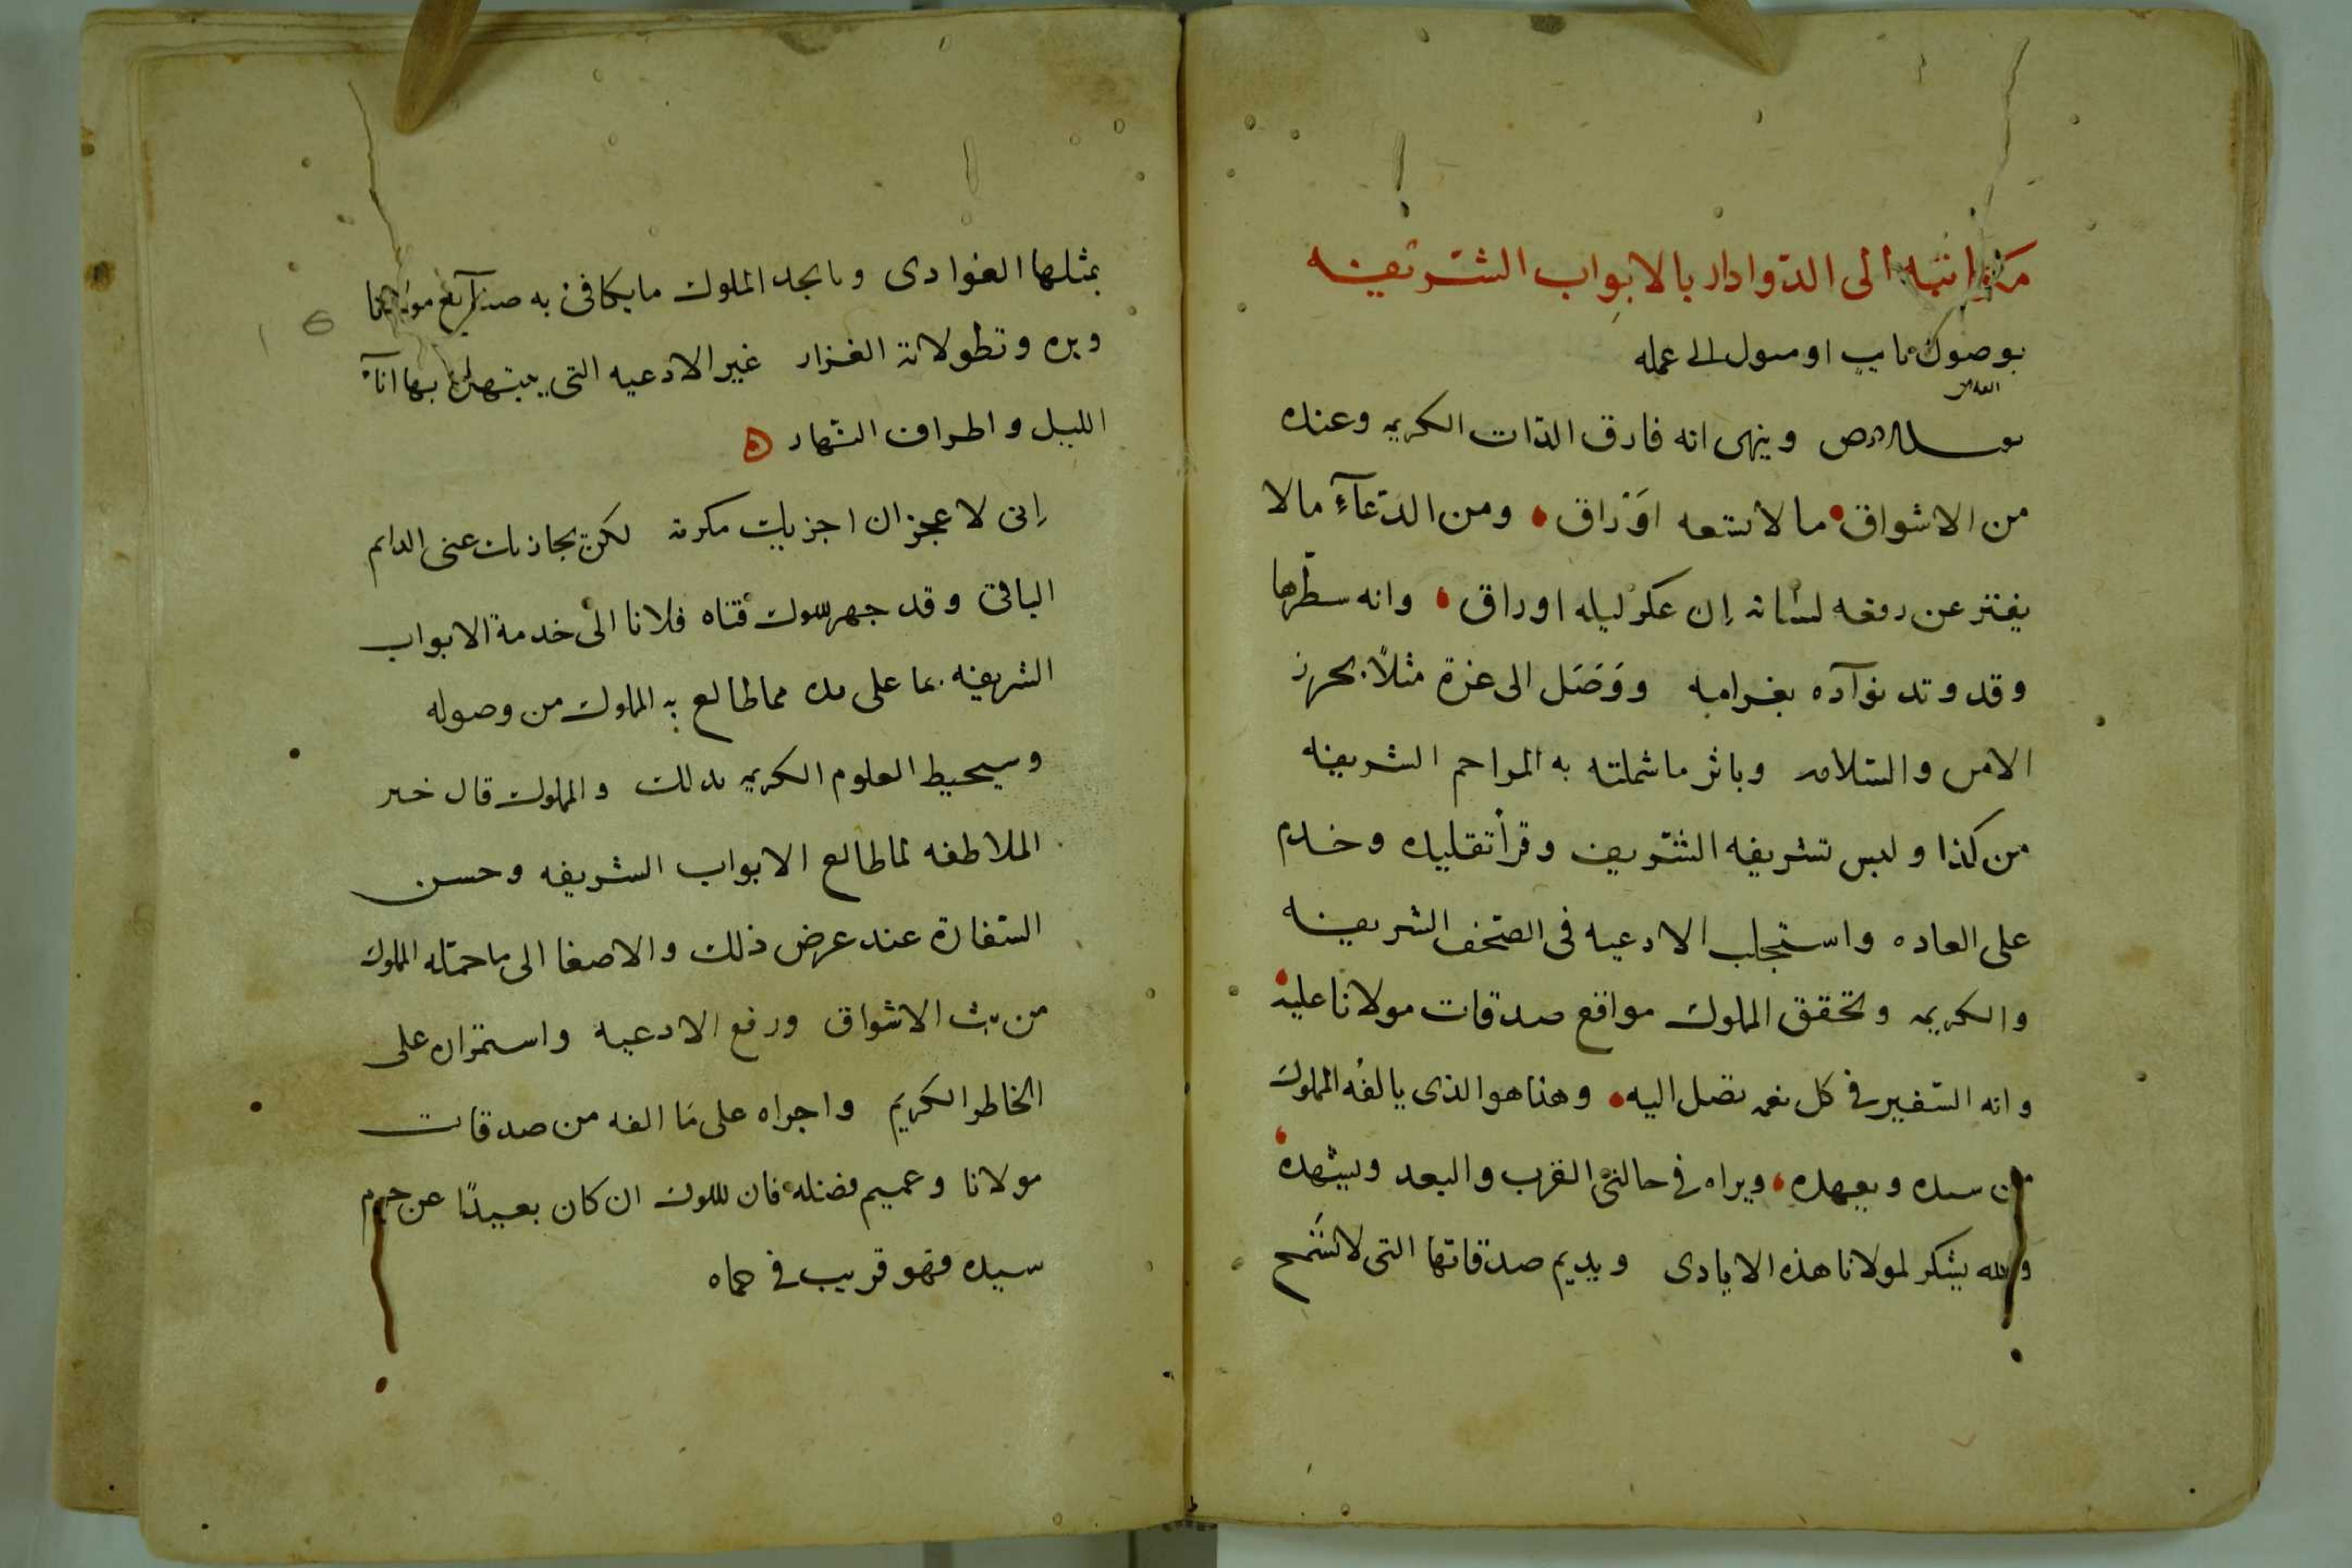 الى الدوادار بالابواب الشريفه
بوصول نايب او مسول الى عمله
وينهى انه فارق الذات الكريمه وعنده
من الاشواق ما لا تسعه اوراق ومن الدعآء ما لا
يفتر عن رفعه لسانه إن عكر ليله او راق وانه سطرها
وقد وقد فوآده بغرامه ووصل الى غزة مثلاً بحرز
الامن والسلامه وباثر ما شملته به المراحم الشريفه
من كذا ولبس تشريفه الشريف وقرأ تقليده وخدم
على العاده واستجلب الادعيه فى الصحف الشريفه
والكريمه وتحقق المملوك مواقع صدقات مولانا عليه
وانه السفير فى كل نعمه تصل اليه وهذا هو الذى يالفه المملوك
من سيده ويعهده ويراه فى حالتى القرب والبعد ويشهده
والله يشكر لمولانا هذه الايادى ويديم صدقاتها التى لا تسمح
بمثلها الغوادى وما يجد المملوك ما يكافى به صنايع مولانا
وبره وتطولاته الغزار غير الادعيه التى يبتهل بها انآء
الليل واطراف النهار
إنى لا عجز ان اجزيك مكرمة لكن يجازيك عنى الدايم
الباقى وقد جهز المملوك فتاه فلانا الى خدمة الابواب
الشريفه بما على يده مما طالع به المملوك من وصوله
وسيحيط العلوم الكريمه بذلك والمملوك
الملاطفه لما طالع الابواب الشريفه وحسن
السفارة عند عرض ذلك والاصغا الى ما حمله المملوك
من بث الاشواق ورفع الادعيه واستمراره على
الخاطر الكريم واجراه على مَا الفه من صدقات
مولانا وعميم فضله فان المملوك ان كان بعيدًا عن حرم
سيده فهو قريب فى حماه